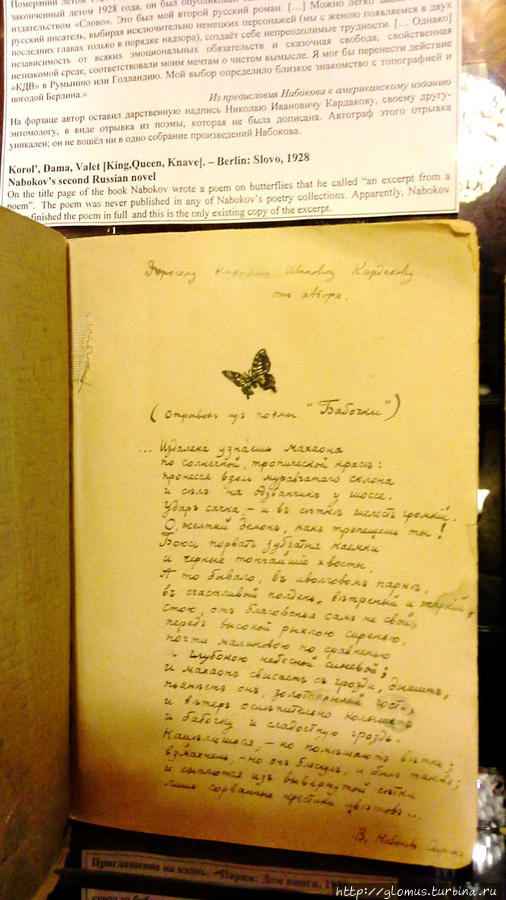 Померании летом
законченный летом 1928 года, он был опубликован
издательством «Слово». Это был мой второй русский роман. […] Можно легко
русский писатель, выбирая исключительно немецких персонажей (мы с женою появляемся в двух
последних главах только в порядке надзора), создаёт себе непреодолимые трудности. [… Однако]
независимость от всяких эмоциональных обязательств и сказочная свобода, свойственная
незнакомой среде, соответствовали моим мечтам о чистом вымысле. Я мог бы перенести действие
«КДВ» в Румынию или Голландию. Мой выбор определило близкое знакомство с топографией и
погодой Берлина.»
Из предисловия Набокова к американскому изданию
На форзаце автор оставил дарственную надпись Николаю Ивановичу Кардакову, своему другу-
энтомологу, в виде отрывка из поэмы, которая не была дописана. Автограф этого отрывка
уникален; он не вошёл ни в одно собрание произведений Набокова.
Korol', Dama, Valet [King,Queen, Knave]. – Berlin: Slovo, 1928
Nabokov's second Russian novel
On the title page of the book Nabokov wrote a poem on butterflies that he called “an excerpt from a
poem”. The poem was never published in any of Nabokov's poetry collections. Apparently, Nabokov
finished the poem in full and this is the only existing copy of the excerpt.
Дорогому Николаю Ивановичу Кардакову
отъ автора.
(Отрывокъ изъ поэмы "Бабочки")
... Издалека узнаешь махаона
по солнечной, тропической красѣ:
пронесся вдоль муравчатаго склона
и сѣлъ на одуванчикъ у шоссе.
Ударъ сачка, – и въ сѣткѣ шелестъ громкій.
О, желтый демонъ, какъ трепещешь ты!
Боюсь порвать зубчатыя каемки
и черные тончайшіе хвосты.
А то бывало, въ иволговомъ паркѣ,
въ счастливый полдень, вѣтреный и жаркій,
стою, отъ благовонья самъ не свой,
передъ высокой рыхлою сиренью,
почти малиновою по сравненью
и глубокою небесной синевой;
и махаонъ свисаетъ съ грозди, дышитъ,
пьянѣетъ онъ, золотокрылый гость,
и вѣтеръ ослѣпительно колышетъ
и бабочку и сладостную гроздь.
Нацѣлишься, – но помѣшаютъ вѣтки;
взмахнешь, – но онъ блеснулъ, и былъ таковъ;
и сыплются изъ вывернутой сѣтки
лишь сорванные крестики цвѣтовъ...
В. Набоковъ
Приглашение на казнь. – Париж: Дом книги,
http://glomus.turbina.ru/